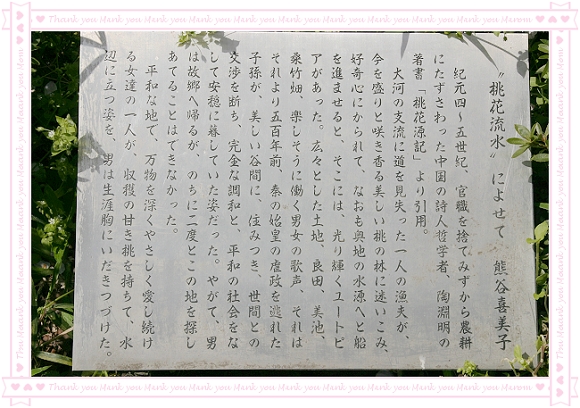 Thank you Thank you Thank you Thank you Thank you Thank you
〝桃花流水〟によせて　熊谷喜美子
紀元四～五世紀、官職を捨てみずから農耕
にたずさわった中国の詩人哲学者、陶淵明の
著書「桃花源記」より引用。
大河の支流に道を見失った一人の漁夫が、
今を盛りと咲き香る美しい桃の林に迷いこみ、
好奇心にかられて、なおも奥地の水源へと船
を進ませると、そこには、光り輝くユートピ
アがあった。広々とした土地、良田、美池、
桑竹畑、楽しそうに働く男女の歌声、それは
それより五百年前、秦の始皇の虐政を逃れた
子孫が、美しい谷間に、住みつき、世間との
交渉を断ち、完全な調和と、平和の社会をな
して安穏に暮していた姿だった。やがて、男
は故郷へ帰るが、のちに二度とこの地を探し
あてることはできなかった。
平和な地で、万物を深くやさしく愛し続け
る女達の一人が、収穫の甘き桃を持ちて、水
辺に立つ姿を、男は生涯胸にいだきつづけた。